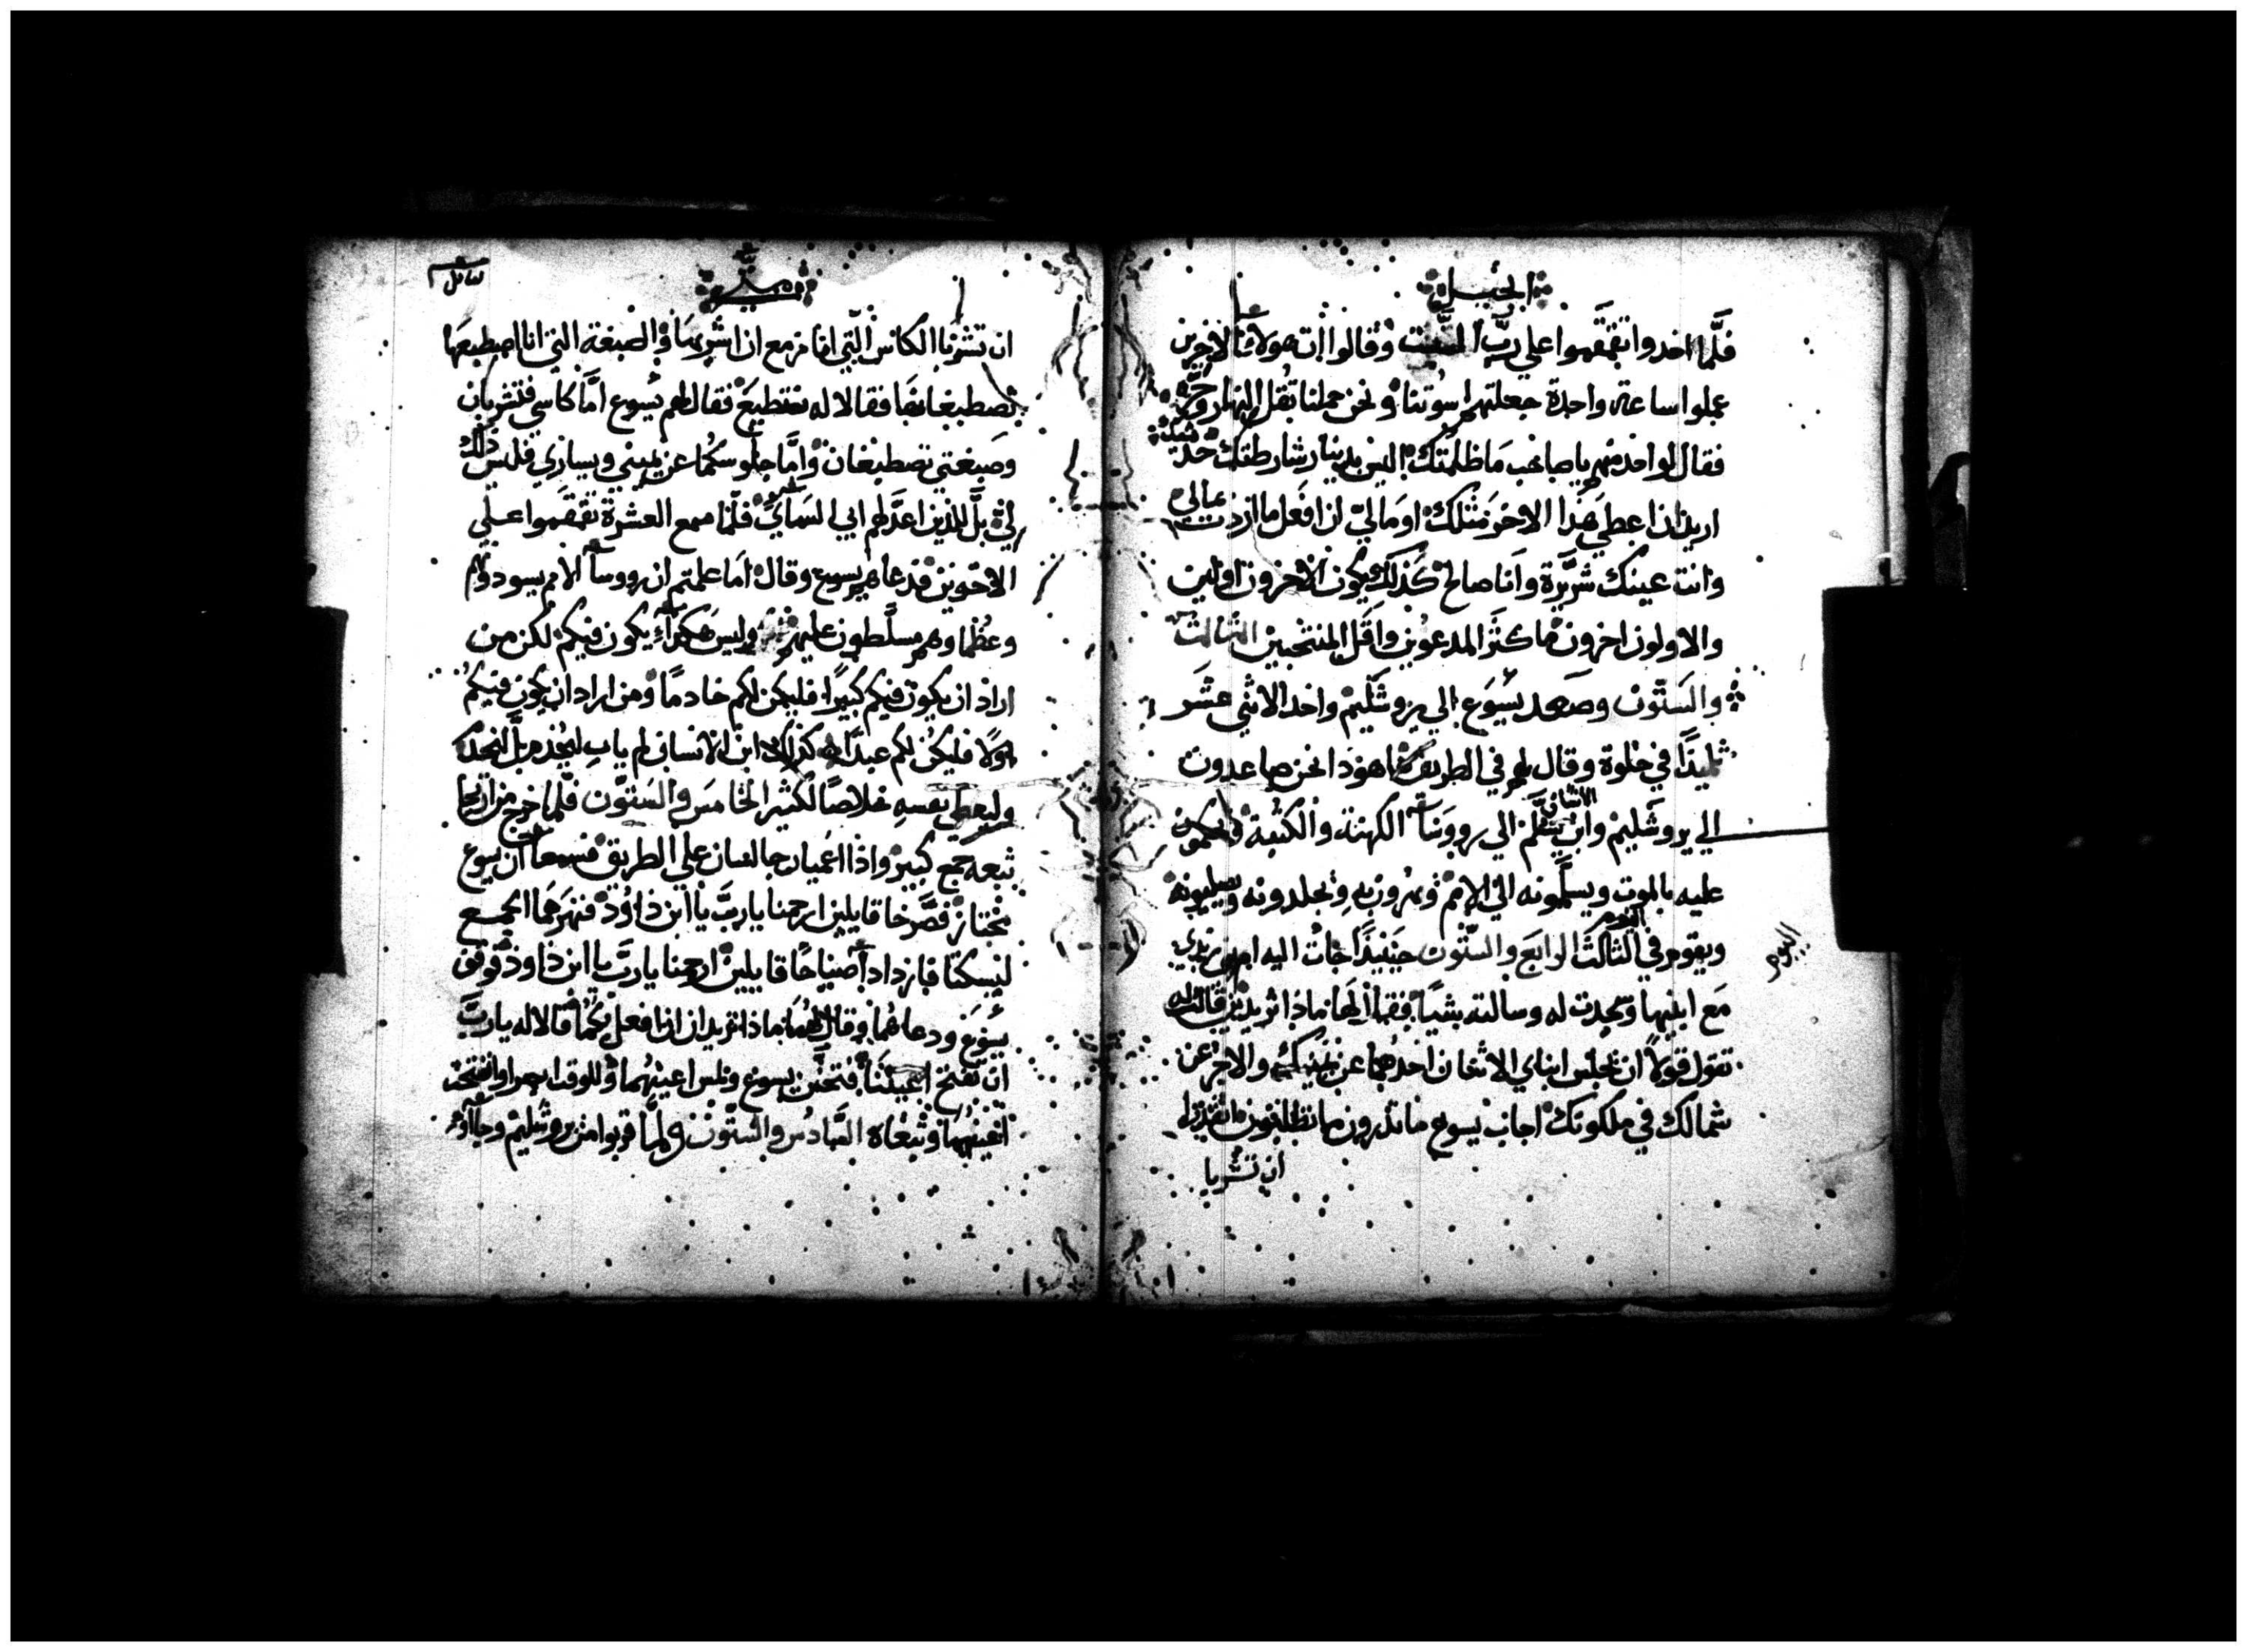 انجيل
فلَّما اخدوا تقمقموا علي ربّ البيت وقالوا ان هولاء الاخرين
عملوا ساعة واحدة جعلتهم اسوتنا ونحن حملنا ثقل النهار وحرّه
فقال لواحد منهم يا صاحب ما ظلمتك اليس بدينار شارطتك خد شيك
اريد ان اعطي هذا الاخر مثلك او ما لي ان افعل ما اردت بمالي
وانت عينك شرَّيرة وانا صالح كذلك يكون الاخرون اولين
والاولون اخرون ما اكثر المدعوين واقل المنتخبين الثالث
والستّون وصعد يسوع الي يروشليم واخد الاثني عشر
تلميذًا في خلوة وقال لهم في الطريق ها هودا نحن صاعدون
الي يروشليم وابن الانسان يسَّلم الي رووسا الكهنة والكتبة فيحكمون
عليه بالموت ويسلَّمونه الي الامم ويهزون به ويجلدونه ويصلبونه
ويقوم في اليوم الثالث الرابع والستّون حينيذًا جات اليه ام ابني زبدي
اليوم
مع ابنيها وسجدت له وسالته بشيًا فقال لها ماذا تريدين قالت له
تقول قولًا ان يجلس ابناي الاثنان احدهما عن يمينك والاخر عن
شمالك في ملكوتك اجاب يسوع ما تدرون ما تطلبون اتقدرا
ان تشربا
متي
ان تشربا الكاس الَّتي انا مزمع ان اشربها والصبغة التي انا اصطبغها
تصطبغانها فقالا له نستطيع فقال لهم يسوع امَّا كاسي فتشربان
وصبغتي تصطبغان وامَّا جلوسكُما عن يميني ويساري فليس ذلك
لي بلَّ للذين اعدَّ لهم ابي السماي فلّما سمع العشرة تقمقموا علي
الاخوين فدعاهم يسوع وقال اما علمتم ان رووسا الامم يسودوهم
وعُظماوهم مسلَّطون عليهم وليس هكذا يكون فيكم لكن من
اراد ان يكون فيكم كبيرًا فليكن لكم خادمًا ومن اراد ان يكون فيكم
اولًا فليكُن لكم عبدًا كذلك ابن الانسان لم يات ليُخدم بلَّ ليخدم
وليعطي نفسه خلاصًا لكثير الخامس والستّون فلّما خرج من اريحا
تبعه جمع كبير واذا اعميان جالسان علي الطريق فسمعا ان يسوع
مجتاز فصَّرخا قايلين ارحمنا يا ربَّ يا ابن داوُد فنهرهما الجمع
ليسكتا فازدادا صياحًا قايلين ارحمنا يا ربَّ يا ابن داود فوقف
يسوع ودعاهُما وقال لهما ماذا تريدان ان افعل بكُما قالا له يا ربَّ
ان تفتح اعيننا فتحنَّن يسوع ولمس اعينهُما وللوقت ابصرا وانفتحت
اعينهُما وتبعاه السَّادس والستّون ولمَّا قربوا من يروشليم وجاوا